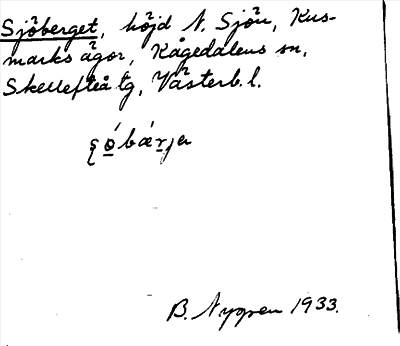 Sjöberget, höjd N. Sjön, Kus-
marks ägor, Kågedalens sn,
Skellefteå tg, Västerb. l.
B. Nygren 1933.